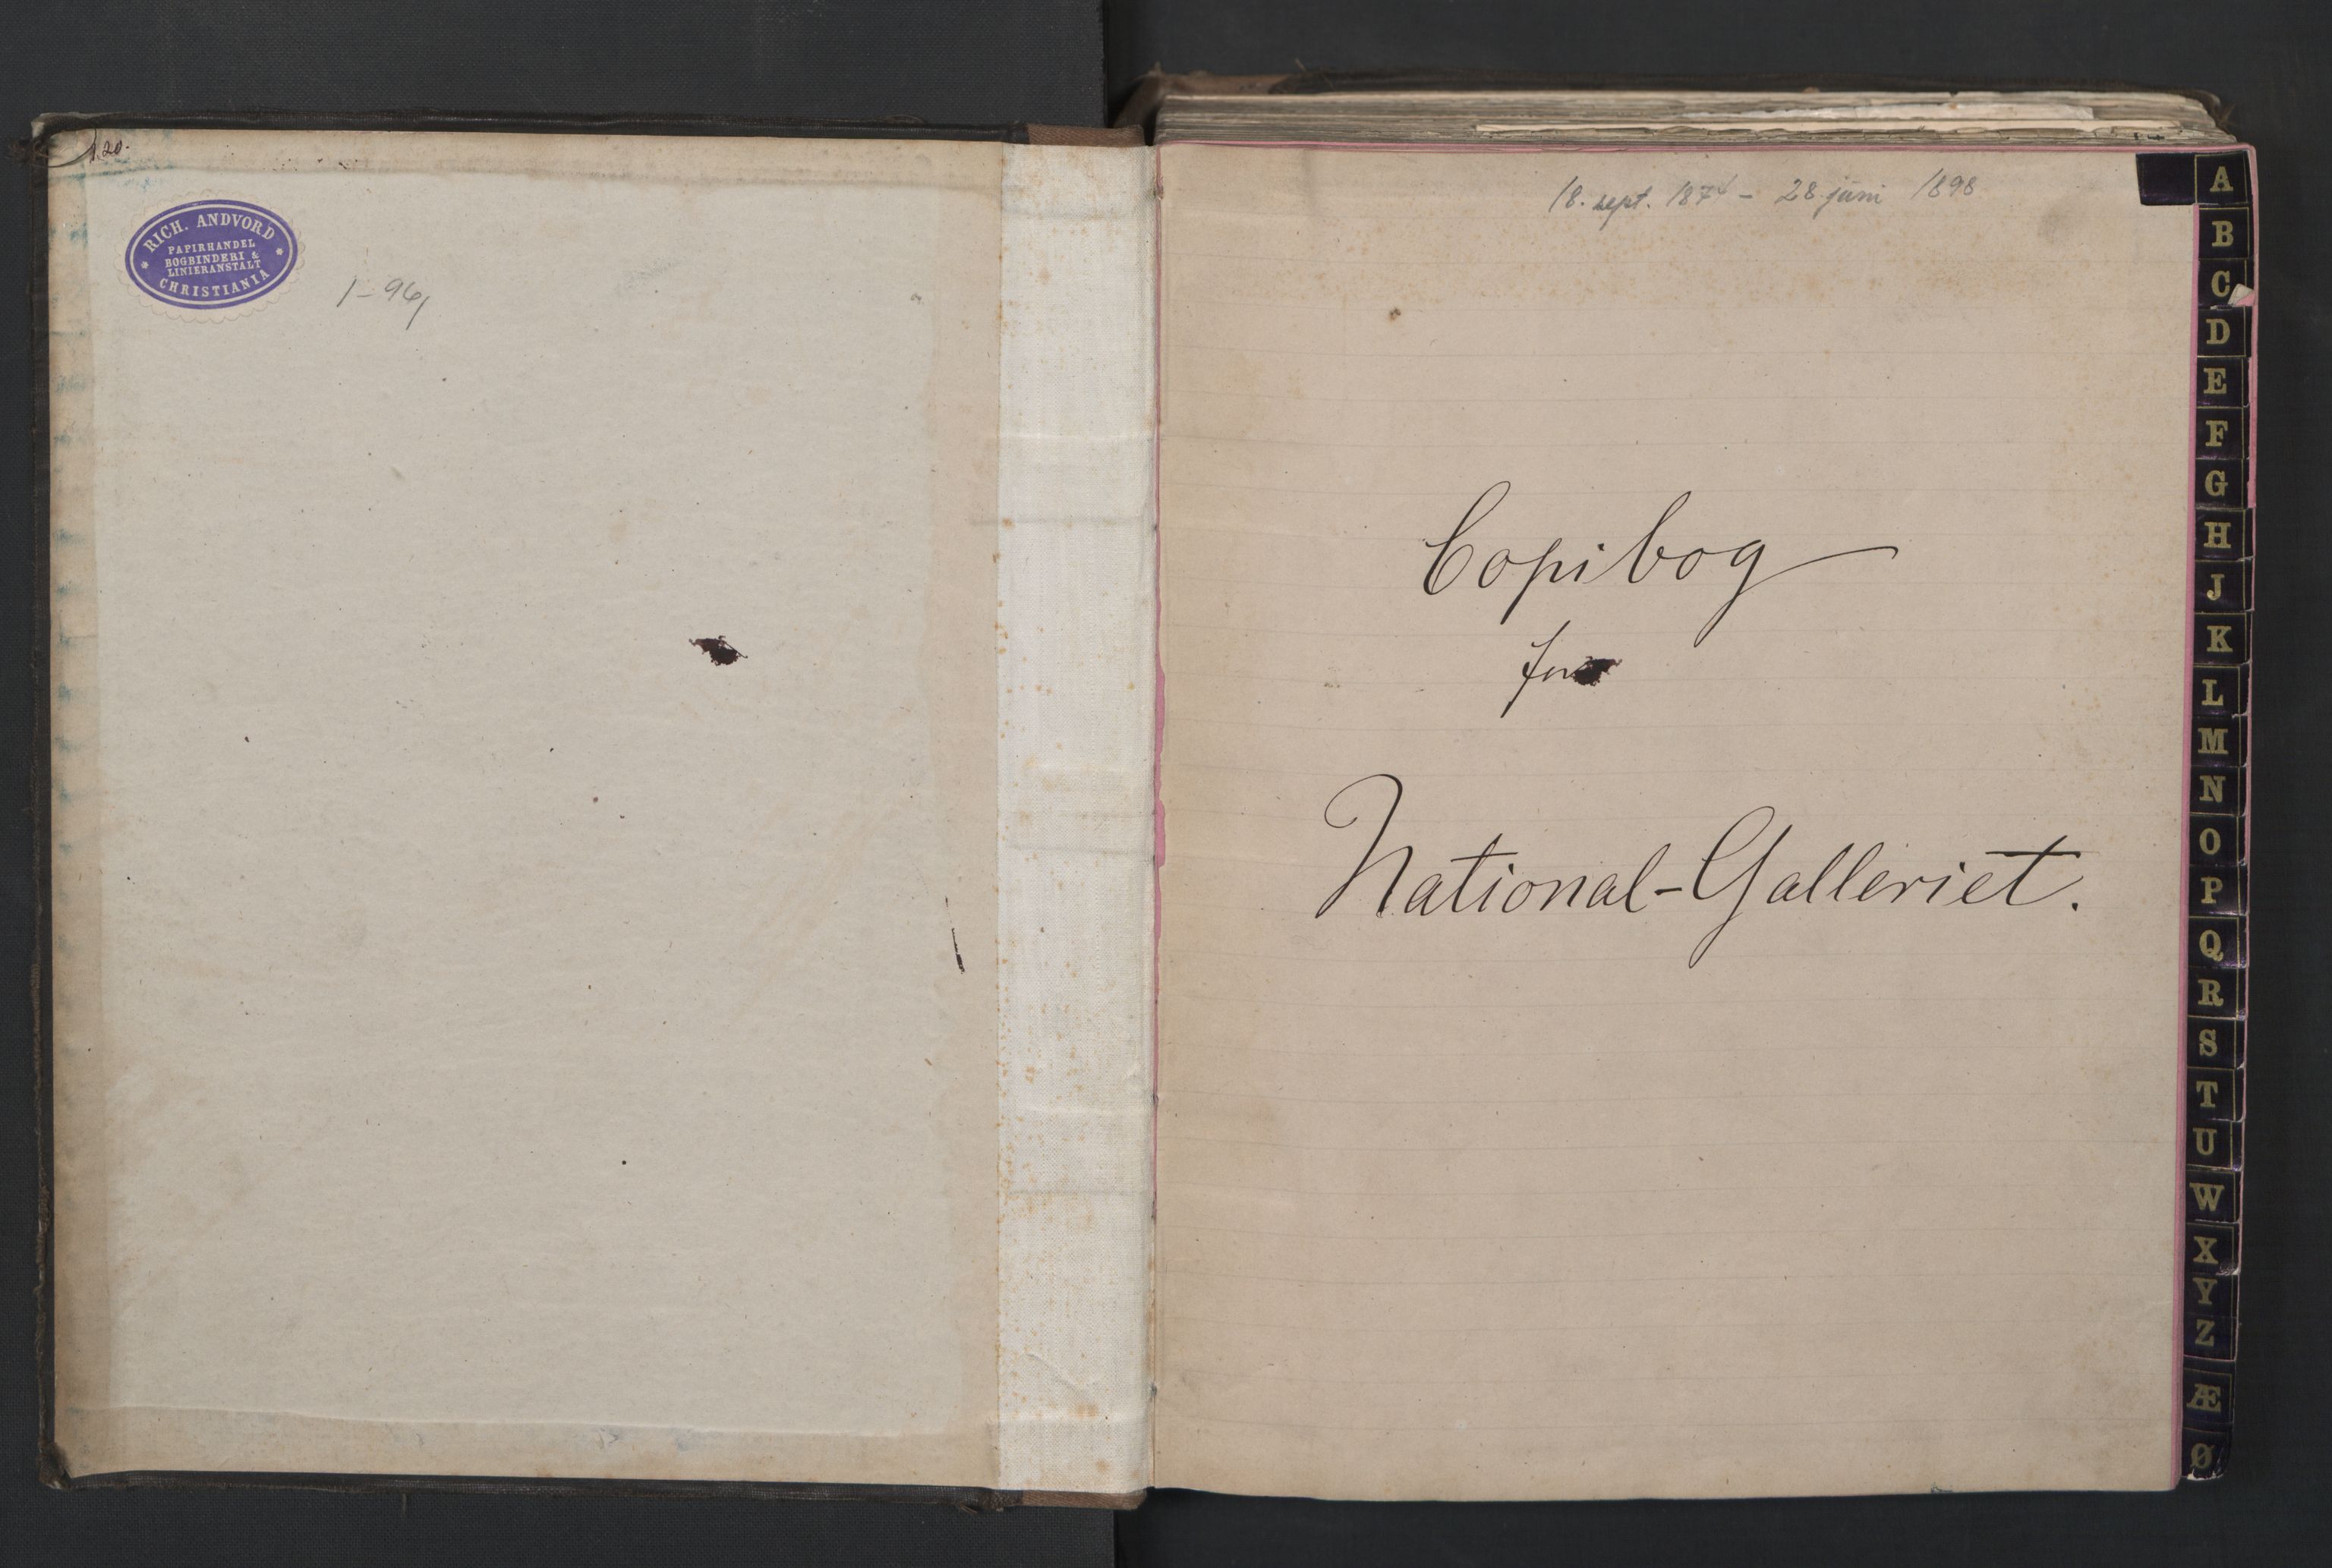 120.
RICH. ANDVORD
PAPIRHANDEL
BOGBINDERI &
LINIERANSTALT
CHRISTIANIA
1-96,
18. sept. 1874 - 28. juni 1898
Copibog
for
National-Galleriet.
A
B
C
D
E
F
G
H
J
K
L
M
N
O
P
Q
R
S
T
U
W
X
Y
Z
Æ
Ø